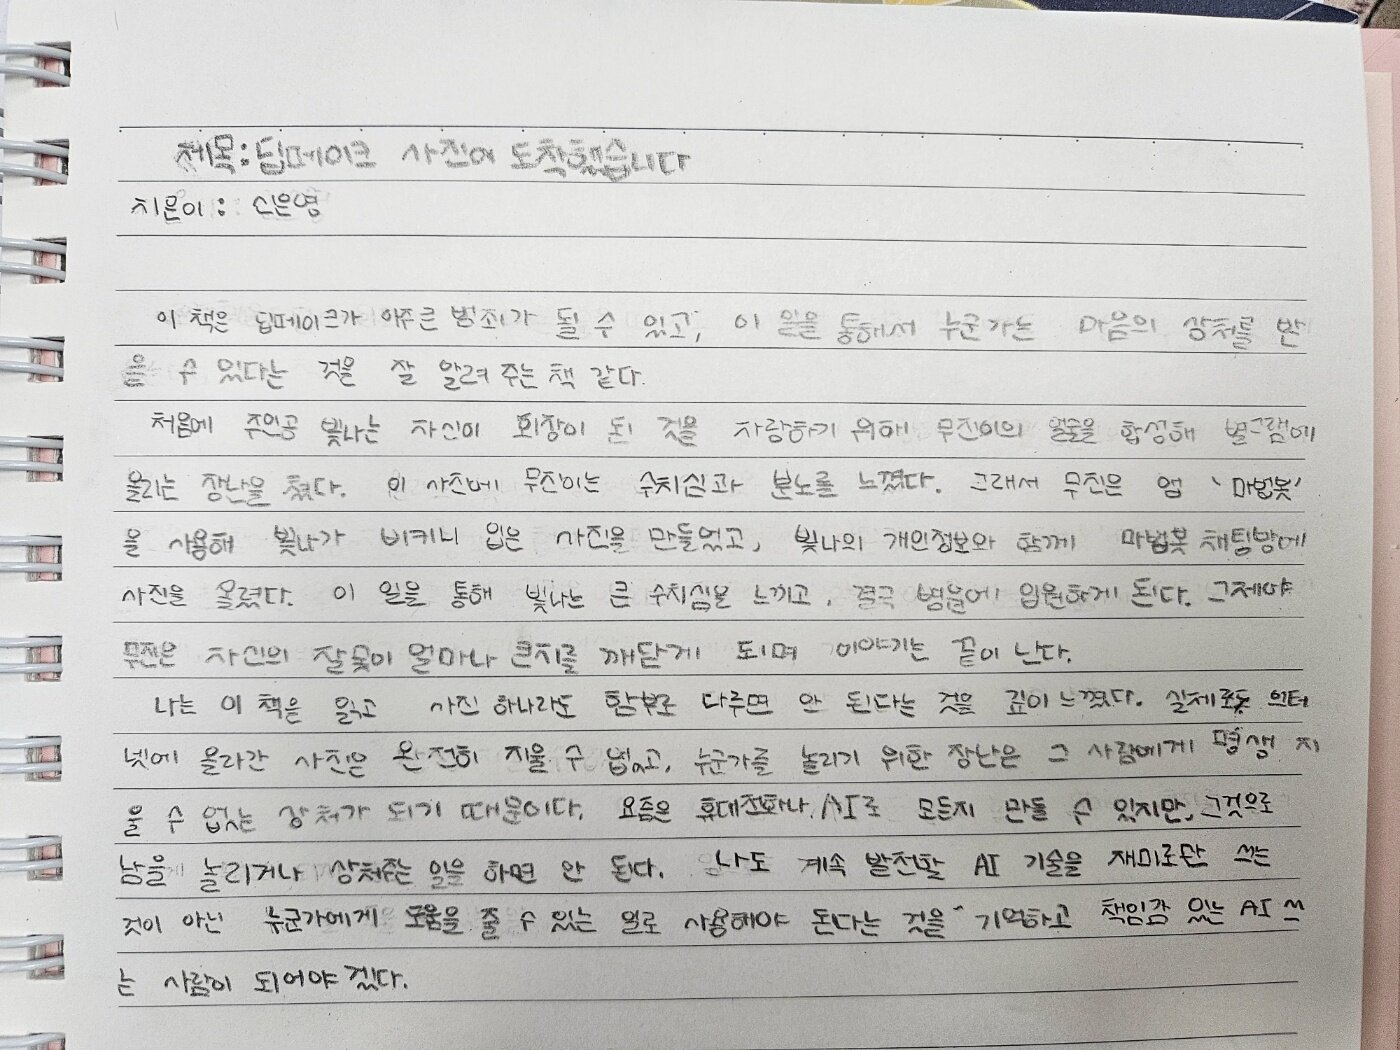 제목: 딥페이크 사진이 도착했습니다
지은이: 신은영
이 책은 딥페이크가 아주 큰 범죄가 될 수 있고, 이 일을 통해서 누군가는 마음의 상처를 받
을 수 있다는 것을 잘 알려 주는 책 같다.
처음에 주인공 빛나는 자신이 회장이 된 것을 자랑하기 위해 무진이의 얼굴을 합성해 별그램에
올리는 장난을 쳤다. 이 사진에 무진이는 수치심과 분노를 느꼈다. 그래서 무진은 앱 '마법봇'
을 사용해 빛나가 비키니 입은 사진을 만들었고, 빛나의 개인정보와 함께 마법봇 채팅방에
사진을 올렸다. 이 일을 통해 빛나는 큰 수치심을 느끼고, 결국 병원에 입원하게 된다. 그제야
무진은 자신의 잘못이 얼마나 큰지를 깨닫게 되며 이야기는 끝이 난다.
나는 이 책을 읽고 사진 하나라도 함부로 다루면 안 된다는 것을 깊이 느꼈다. 실제로도 인터
넷에 올라간 사진은 완전히 지울 수 없고, 누군가를 놀리기 위한 장난은 그 사람에게 평생 지
울 수 없는 상처가 되기 때문이다. 요즘은 휴대전화나 AI로 모든지 만들 수 있지만, 그것으로
남을 놀리거나 상처주는 일을 하면 안 된다. 나도 계속 발전할 AI 기술을 재미로만 쓰는
것이 아닌 누군가에게 도움을 줄 수 있는 일로 사용해야 돈다는 것을 기억하고 책임감 있는 AI 쓰
는 사람이 되어야 겠다.